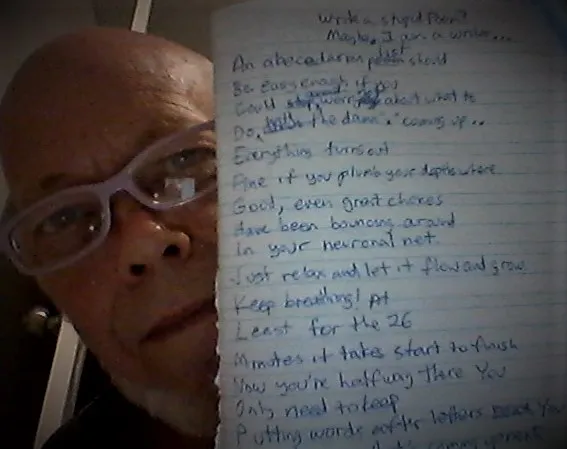 Write a stupid Poem?
Maybe, I am a writer...
An abecedarian list should
Be easy enough if you
Could worrying about what to
Do, the damn "coming up..
Everything turns out
Fine if you plumb your depths where
Good, even great chores
Have been bouncing around
In your neuronal net.
Just relax and let it flow and grow
Keep breathing! At
Least for the 26
Minutes it takes start to finish
Now you're halfway there You
Only need to keep
Putting words after letters You